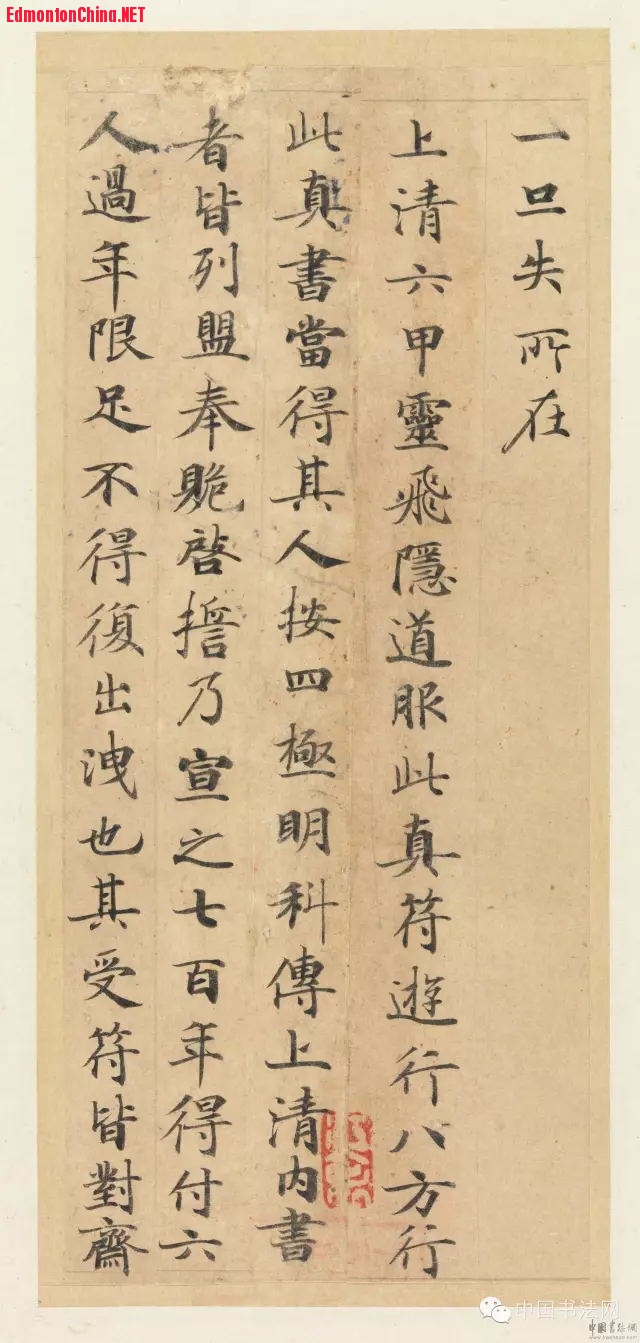 EdmontonChina.NET
一旦失所在
上清六甲靈飛隱道服此真符遊行八方行
此真書當得其人按四極明科傳上清內書
者皆列盟奉貺啓誓乃宣之七百年得付六
人過年限足不得復出洩也其受符皆對齋
中国书法网